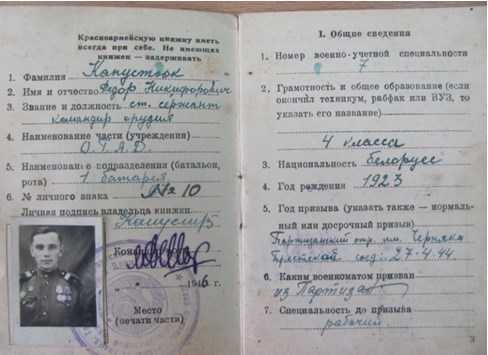 Красноармейскую книжку иметь
всегда при себе. Не имеющих
книжек — задерживать
1. Фамилия Капустюк
2. Имя и отчество Федор Никифорович
3. Звание и должность ст. сержант
командир орудия
4. Наименование части (учреждения)
О.И.А.Д.
5. Наименование подразделения (батальон,
рота) 1 батарея
6. № личного знака № 10
Личная подпись владельца книжки
Капуст
1946 г.
Место
(печати части)
I. Общие сведения
1. Номер военно-учетной специальности
7
2. Грамотность и общее образование (если
окончил техникум, рабфак или ВУЗ, то
указать его название)
4 класса
3. Национальность белорусс
4. Год рождения 1923
5. Год призыва (указать также — нормаль-
ный или досрочный призыв)
отр. им. Черняка
Брестской соед. 27.4.44.
6. Каким военкоматом призван
из Партизан
7. Специальность до призыва
рабочий.
3